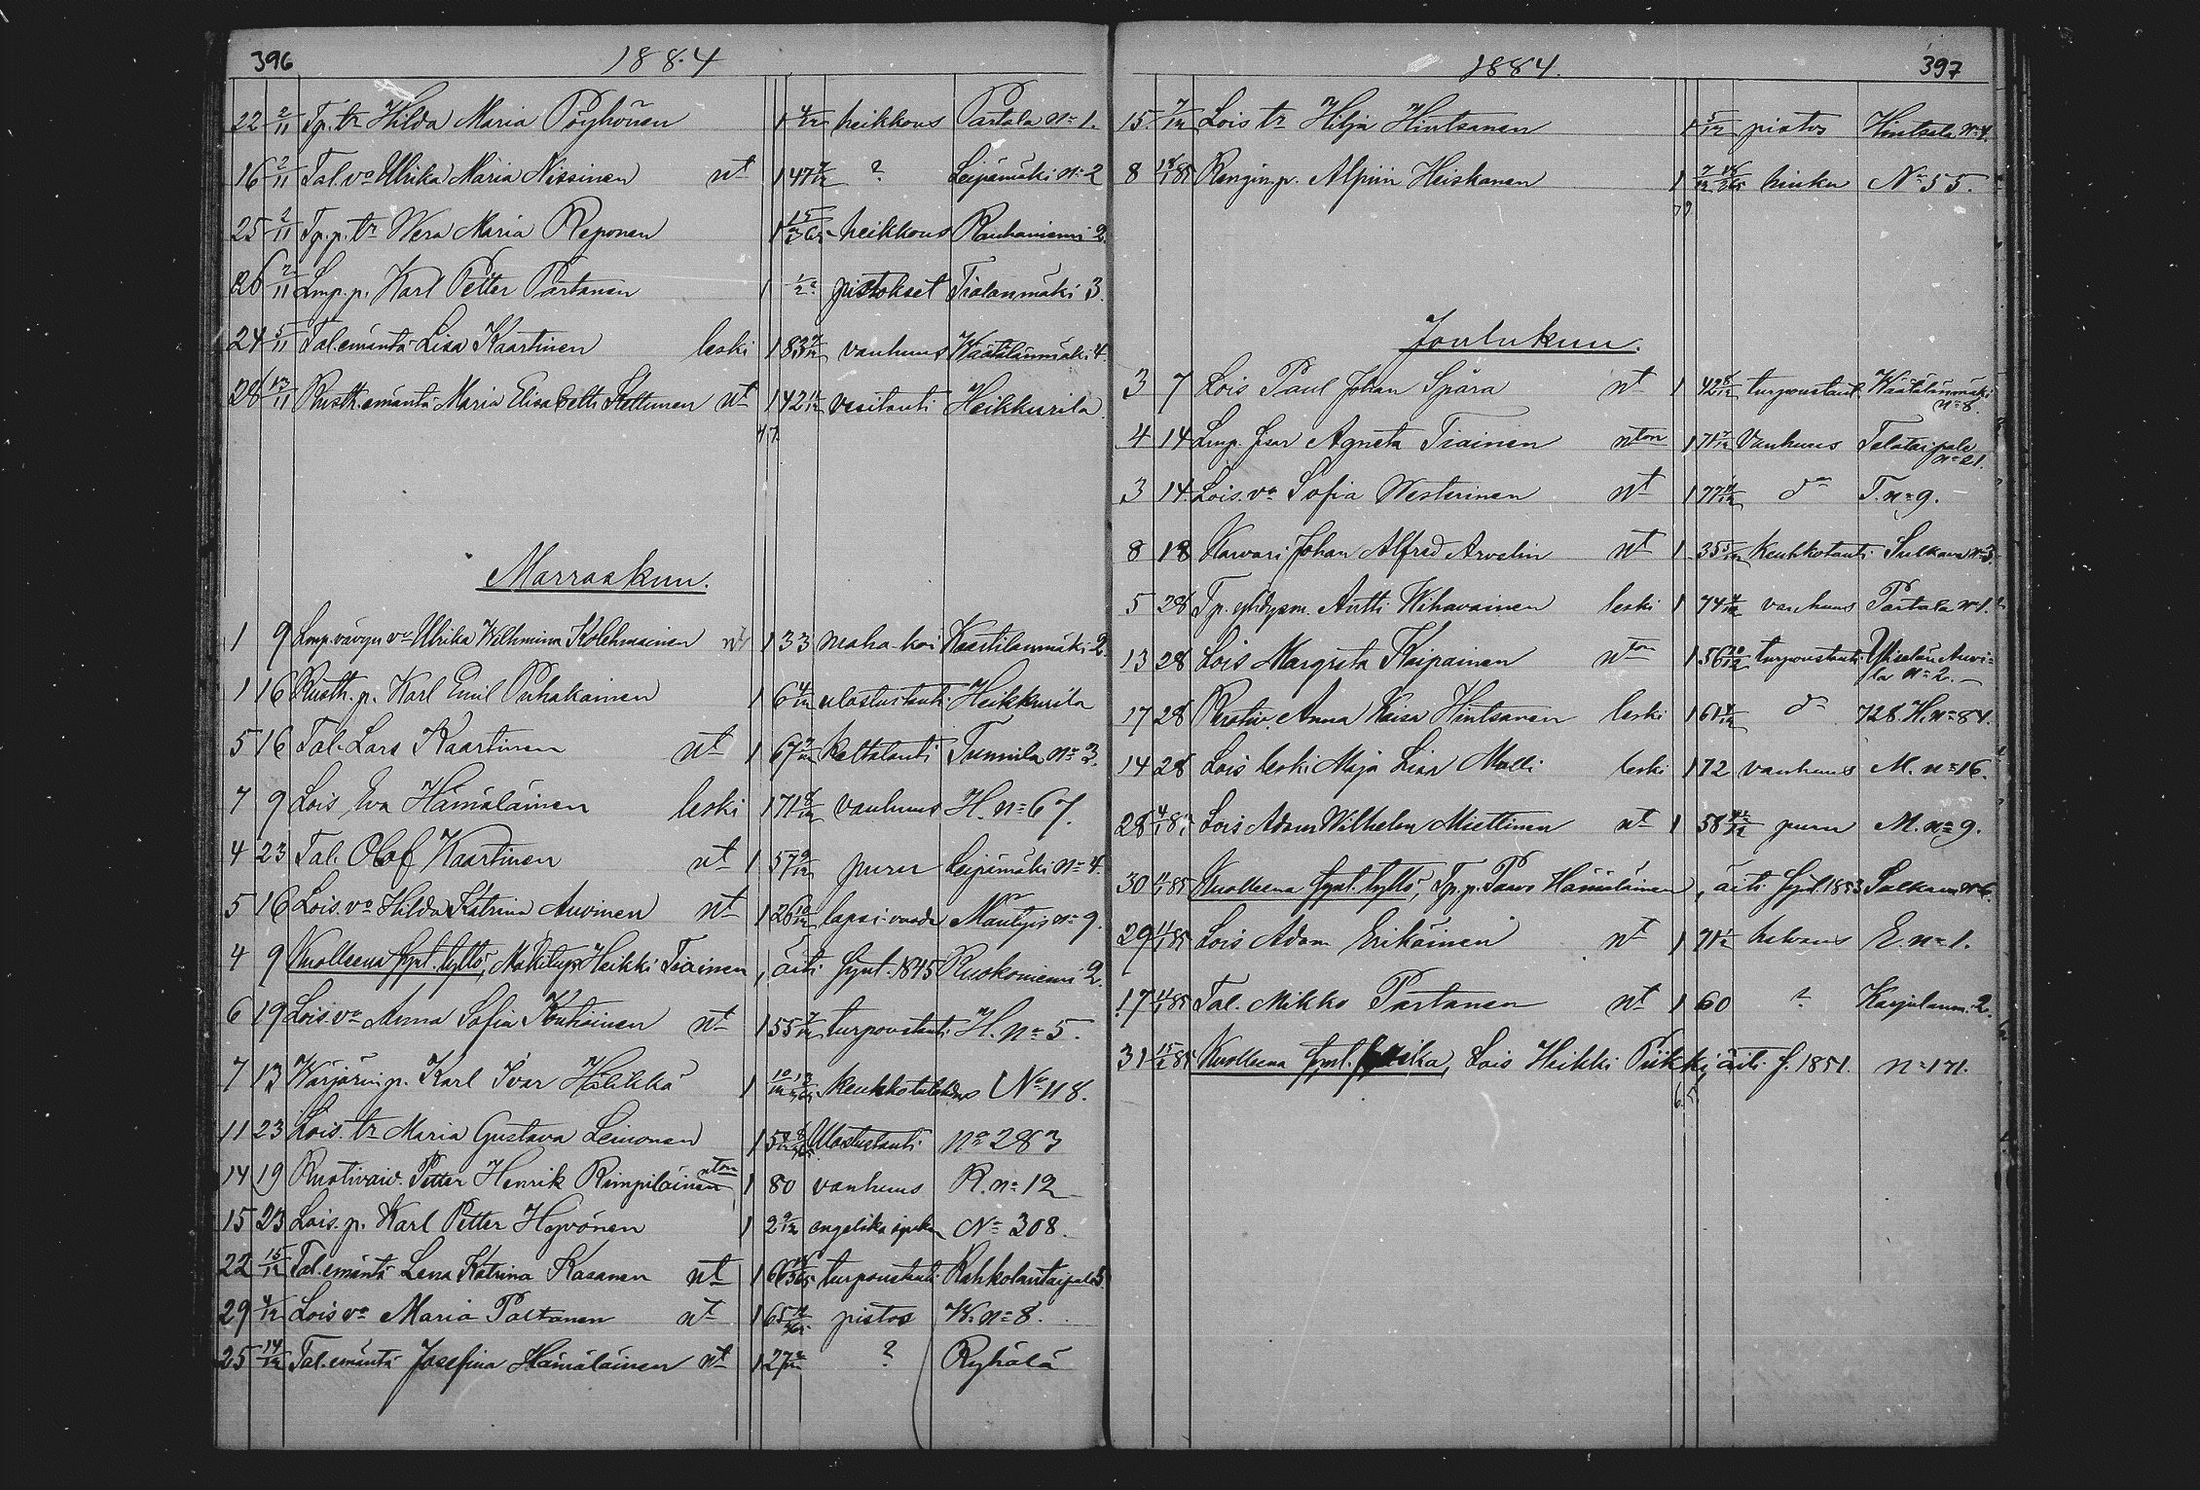 396 1884
22 2/11 Tp. tr Hilda Maria Pöyhönen 1 4/12 heikkous Partala No 1.
16 2/11 Tal. vo Ulrika Maria Nissinen nt 1 47 ? Leipämäki No 2
25 2/11 Tp. p. tr Wera Maria Reponen 1 15/365 heikkous Rauhaniemi 2.
26 2/11 Lmp. p. Karl Petter Partanen 1 1/2 pistokset Tialanmäki 3.
24 5/11 Tal. emäntä Lisa Kaartinen leski 1 83 vanhuus Wäätälänmäki 4.
28 13/11 Rusth. emäntä Maria Elisabeth Kettunen nt 1 42 vesitauti Heikkurila.
Marraskuu.
1 9 Lmp. vävyn vo Ulrika Wilhmina Kolehmainen nt 1 33 maha-kat Kaartilanmäki 2.
1 16 Rusth. p. Karl Emil Puhakainen 1 6 4/12 ulostustauti Heikkurila
5 16 Tal. Lars Kaartinen nt 1 67 keltatauti Tunnila No 3.
7 9 Lois Eva Hämäläinen leski 1 71 vanhuus H. No 67.
4 23 Tal. Olof Kaartinen nt 1 57 9/12 puru Leipämäki No 4.
5 16 Lois. vo Hilda Katrina Auvinen nt 1 26 10/12 lapsi-vuode Mäntyis No 9.
4 9 Kuolleena synt. tyttö, Mäkitup. Heikki Tiainen, äiti synt. 1845 Ruokoniemi 2.
6 19 Lois vo Anna Sofia Koutiainen nt 1 55 turpoustauti H. No 5.
7 13 Värjärin p. Karl Ivar Halikka 1 10/12 keuhkotulehdus No 118.
11 23 Lois. tr Maria Gustava Leinonen 1 Ulostustauti No 283
14 19 Ruotivaiv. Petter Henrik Rimpiläinen nton 1 80 vanhuus R. No 12
15 23 Lois. p. Karl Petter Hyvönen 1 2 9/12 engelska sjukan No 308.
22 15/12 Tal. emäntä Lena Katrina Kasanen nt 1 66 turpoustauti Kohkolantaipale 5
29 4/12 Lois vo Maria Paltanen nt 1 65 pistos W. No 8.
25 14/12 Tal. emäntä Josefina Hämäläinen nt 1 27 ? Ryhälä
1884. 397
15 7/12 Lois tr Hilja Hintsanen 1 5/12 pistos Hintsala No 4.
8 18/1 85 Rengin p. Alpiin Heiskanen 1 hinku No 55.
Joulukuu.
3 7 Lois Paul Johan Spåra nt 1 42 turpoustaut. Wäätälänmäki No 8.
4 14 Lmp. sisar Agneta Tiainen nton 1 71 Vanhuus Telataipale No 21.
3 14 Lois. vo Sofia Westerinen nt 1 77 do T. No 9.
8 18 Karvari Johan Alfred Arvelin nt 1 35 keuhkotauti Sulkava No 3.
5 28 Tp. yhdysm. Antti Wihavainen leski 1 74 vanhuus Partala No 1.
13 28 Lois Margreta Kaipainen nton 1 56 turpoustauti Ykselän Auvila No 2.
17 28 Anna Kaisa Hintsanen leski 1 61 do 728. H. No 84.
14 28 Lois leski Maja Lisa Malli leski 1 72 vanhuus M. No 16.
28 4/1 85 Lois Adam Wilhelm Miettinen nt 1 58 puru M. No 9.
30 85 Kuolleena synt. tyttö, Tp. p. Paavo Hämäläinen, äiti synt. 1853 Sulkava No 6.
29 11/1 85 Lois Adam Erikäinen nt 1 71 halvaus E. No 1.
17 85 Tal. Mikko Partanen nt 1 60 ? Karjulanm. 2.
31 15/2 85 Kuolleena synt. poika, Lois Heikki Piikki, äiti s. 1851. No 171.